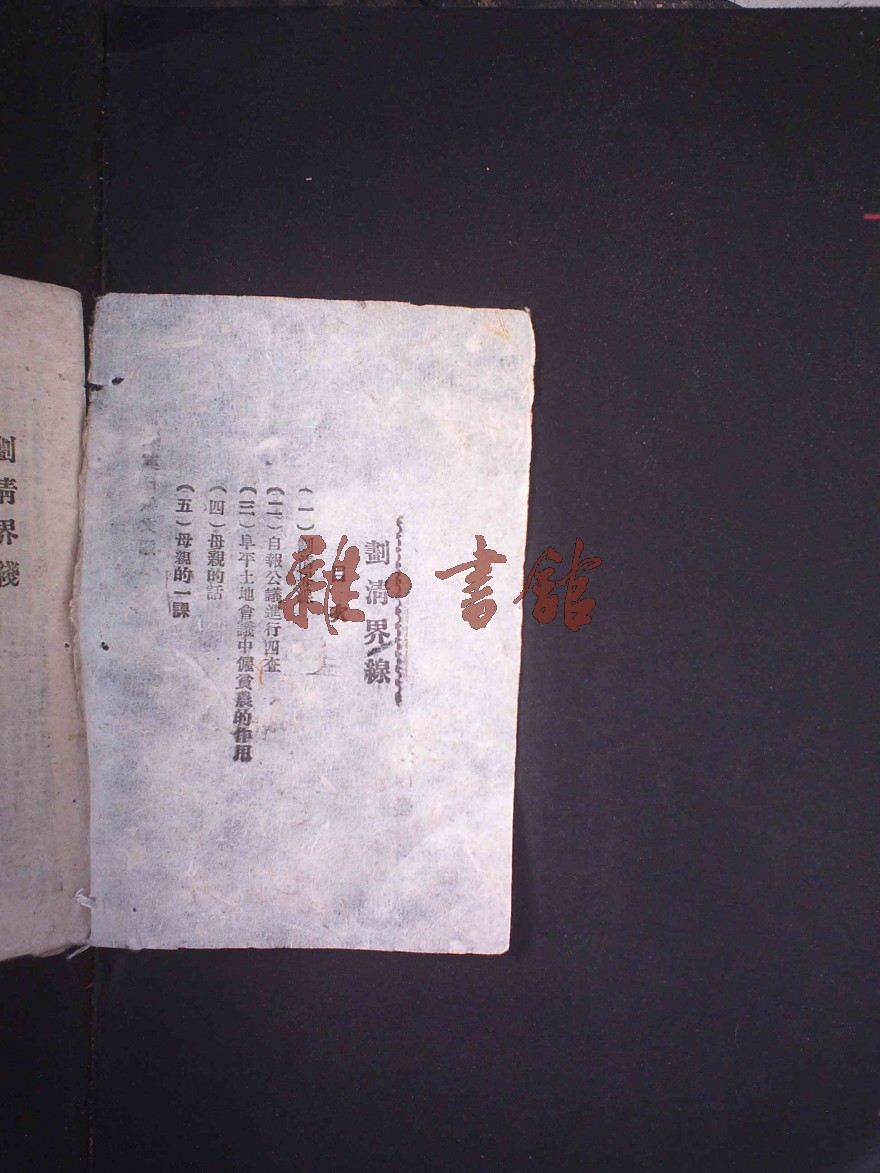 劃清界線
目次
（一）劃清界線
（二）自報公議進行四查
（三）阜平土地會議中僱貧農的作用
（四）母親的話
（五）母親的一課
劃清界綫
雜·書館